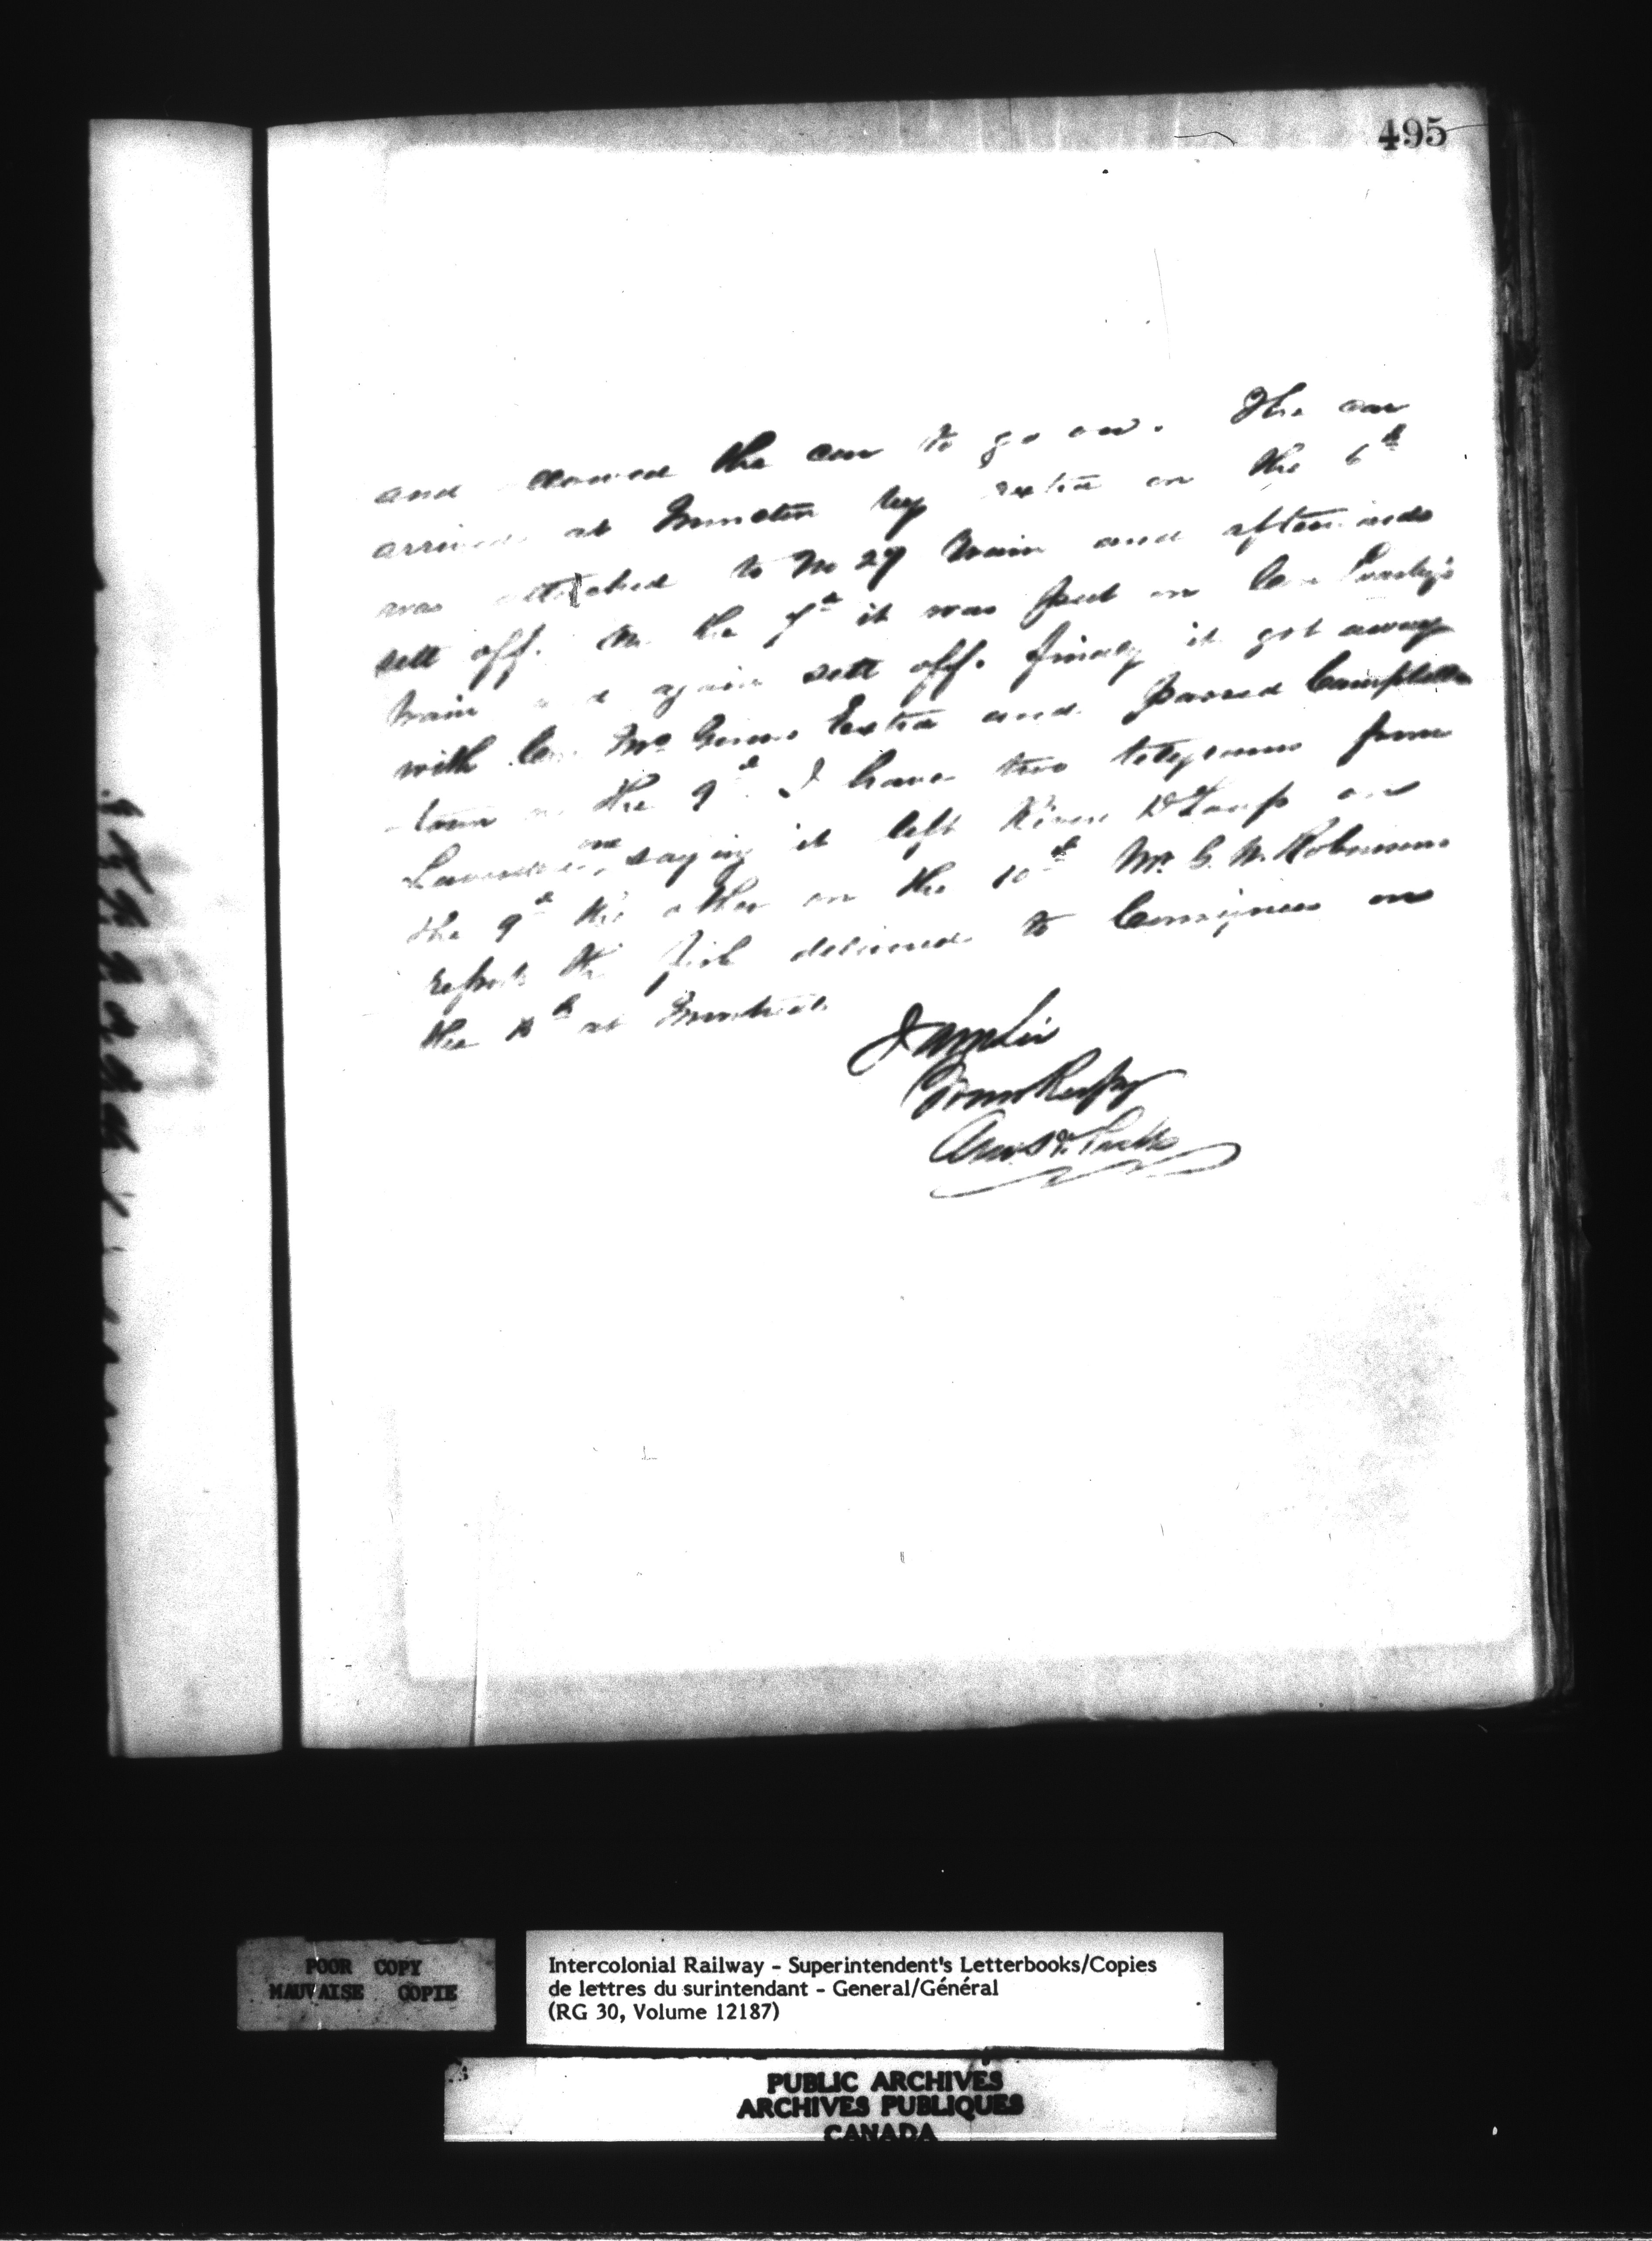 495
and allowed the car to go on. The car
arrived at Moncton by extra on the 6th
was attached to No 29 train and afterwards
sett off. On the 7th it was put on Con
train and again sett off. finaly it got away
with Con Mc Extra and passed Campbell
-town on the 9th. I have two telegrams from
one saying it left River D Loup on
the 9th the other on the 10th Mr. Robinson
reports the fish delivered to Consignees on
the th at Montreal.
I am Sir
Yours Respy
POOR COPY
MAUVAISE COPIE
Intercolonial Railway - Superintendent's Letterbooks/Copies
de lettres du surintendant - General/Général
(RG 30, Volume 12187)
PUBLIC ARCHIVES
ARCHIVES PUBLIQUES
CANADA